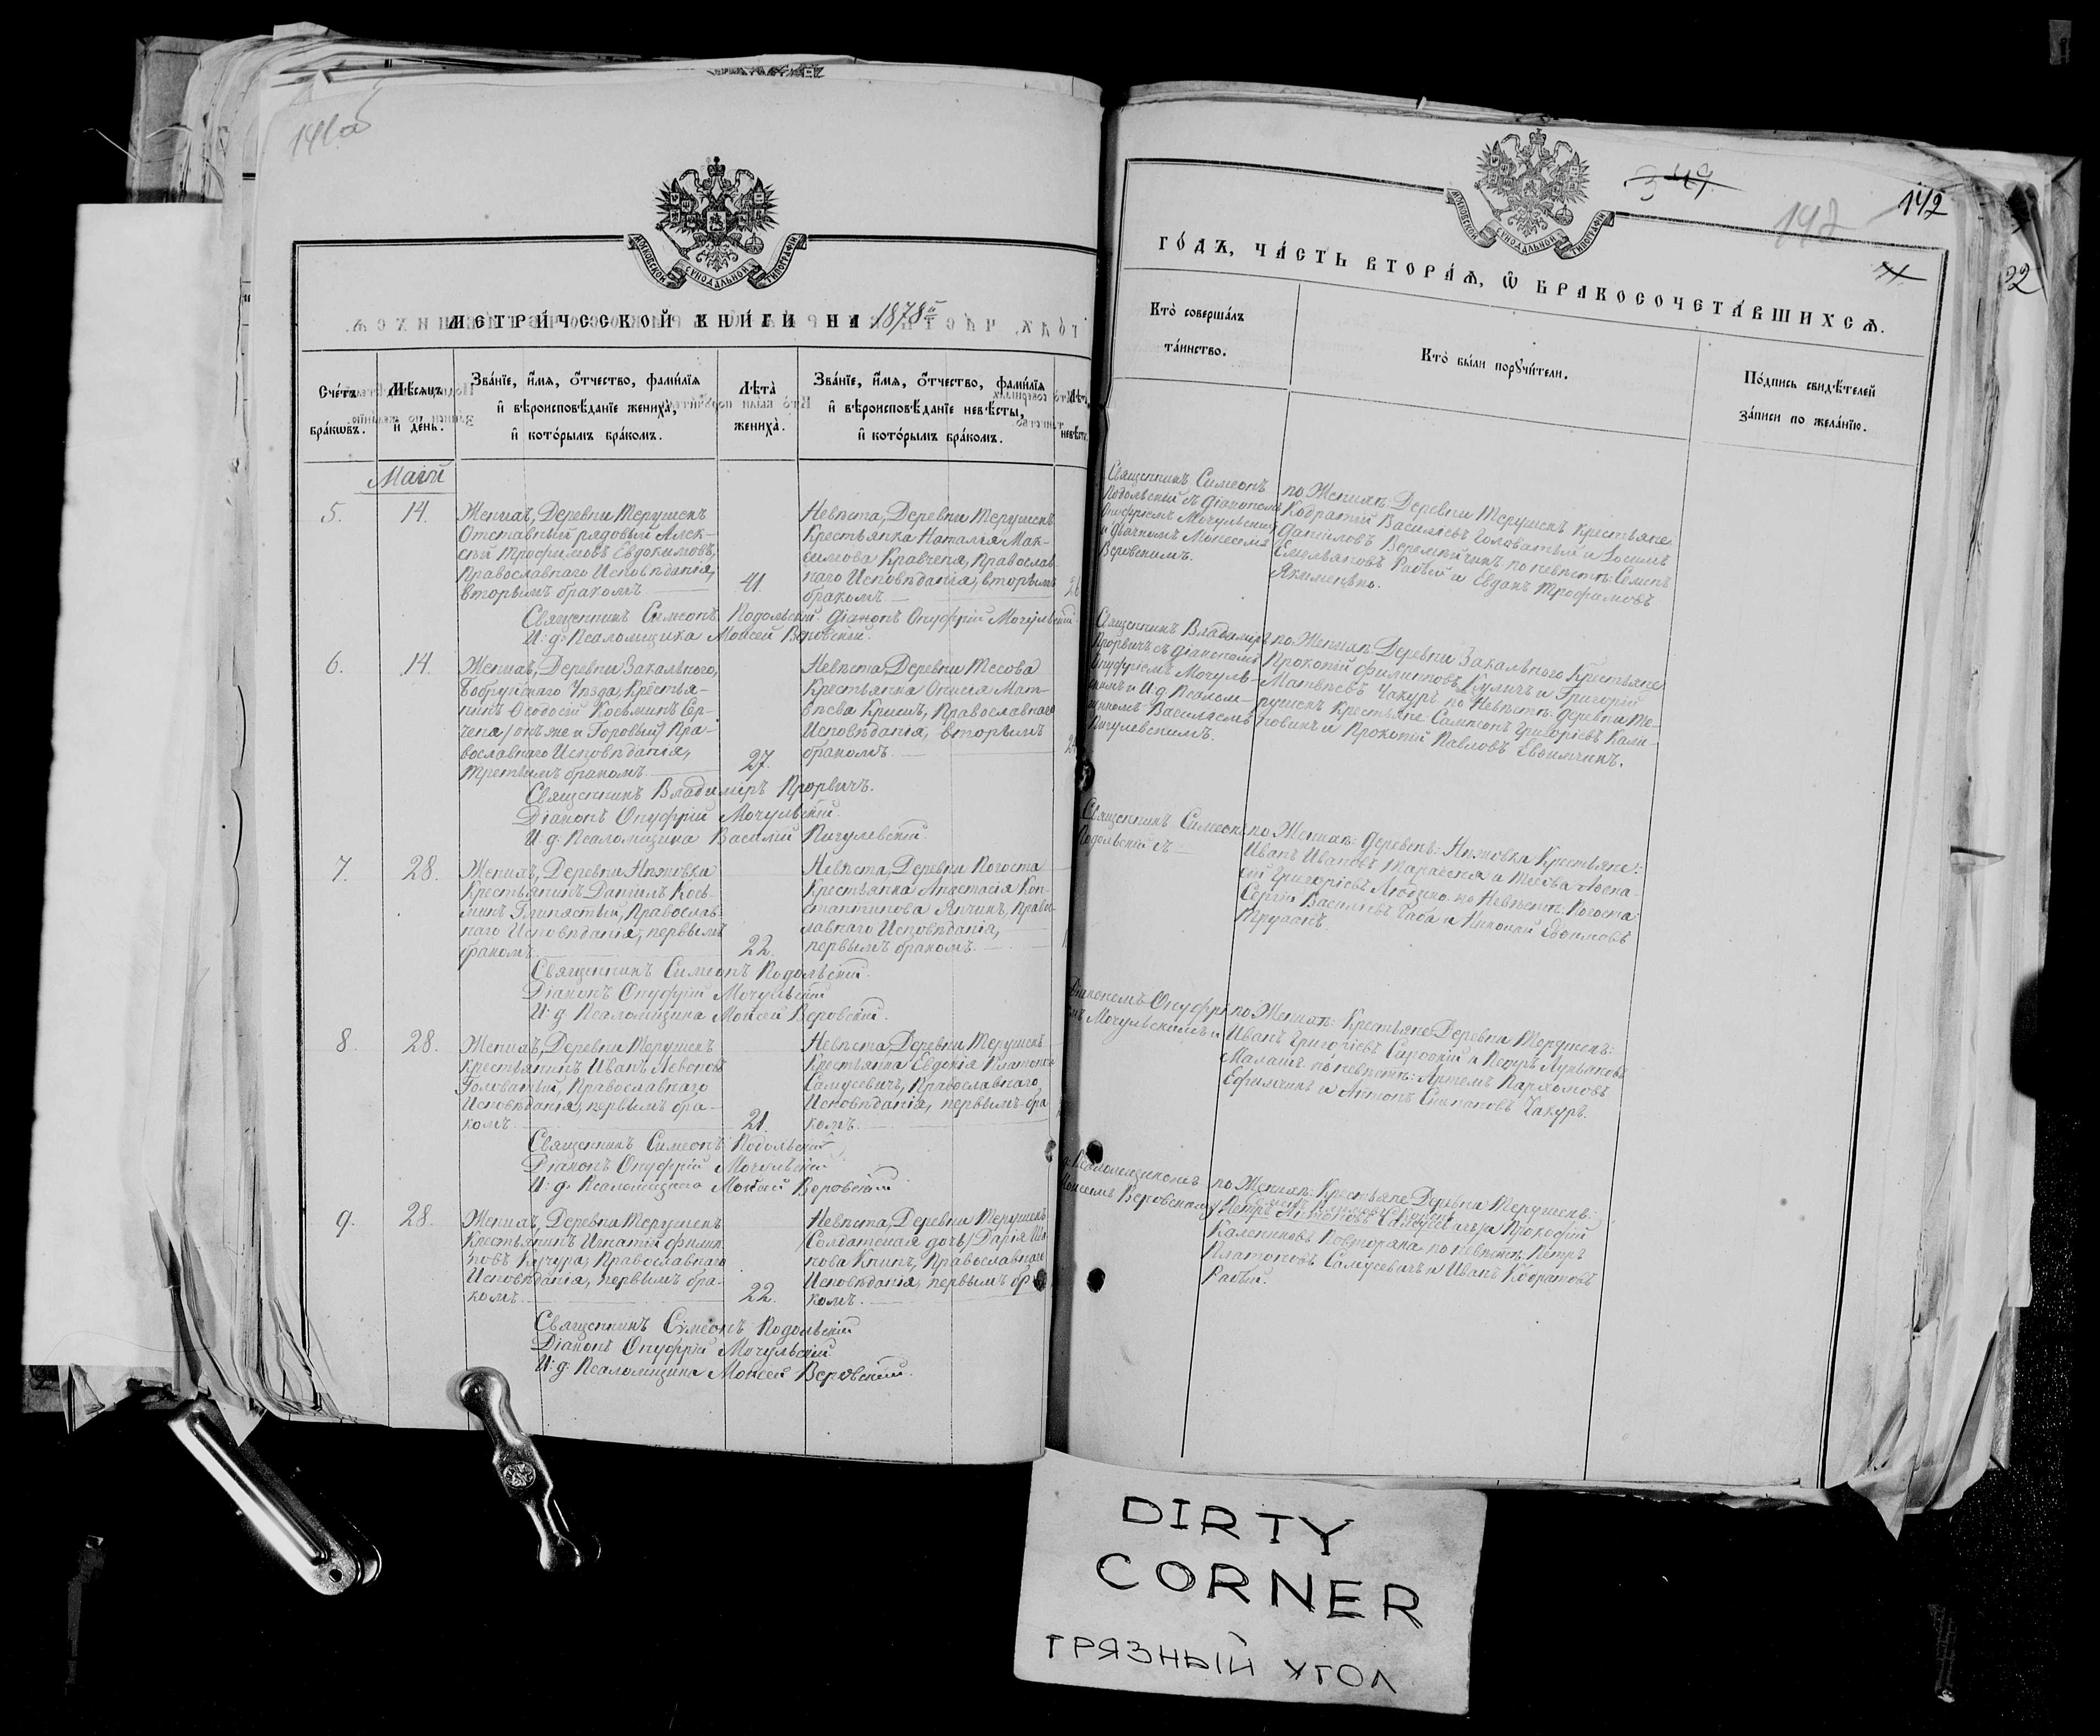 141об
МОСКОВСКОЙ СѴНОДАЛЬНОЙ ТИПОГРАФІИ
МЕТРИ́ЧЕССКОЙ КНИ́ГИ НА 1878й
Сче́тъ бра́кѡвъ.
Мѣ́сяцъ и҆ день.
Зва́нїе, и҆́мѧ, ѻ҆́тчество, фами́лїѧ
и҆ вѣроисповѣ́данїе жениха̀,
и҆ кото́рымъ бра́комъ.
Лѣ́та̀
жениха̀.
Зва́нїе, и҆́мѧ, ѻ҆́тчество, фами́лїѧ
и҆ вѣроисповѣ́данїе невѣ́сты,
и҆ кото́рымъ бра́комъ.
Маій
5.
14.
Женихъ, Деревни Терушекъ
Отставный рядовый Алек-
сѣй Трофимовъ Евдокимовъ,
Православнаго Исповѣданія,
вторымъ бракомъ
41.
Невѣста, Деревни Терушекъ
Крестьянка Наталья Мак-
симова Кравченя, Православ
наго Исповѣданія, вторымъ
бракомъ
Священникъ Симеонъ Подольскій. Діаконъ Онуфрій Мочульскій
И: д: Псаломщика Моисей Веровскій.
6.
14.
Женихъ, Деревни Закальнаго,
Бобруйскаго Уѣзда, Крестья-
нинъ Ѳеодосій Косьминъ Сер-
чена /онъ же и Горовый/ Пра-
вославнаго Исповѣданія,
третьимъ бракомъ
27.
Невѣста, Деревни Тесова
Крестьянка Онисія Мат-
вѣева Кришъ, Православнаго
Исповѣданія, вторымъ
бракомъ.
Священникъ Владиміръ Прорвичъ.
Діаконъ Онуфрій Мочульскій.
И: д: Псаломщика Василій Пигулевскій.
7.
28.
Женихъ, Деревни Нижовки
Крестьянинъ Даніилъ Кось-
минъ Глинястый, Православ-
наго Исповѣданія, первымъ
бракомъ
22.
Невѣста, Деревни Погоста
Крестьянка Анастасія Кон-
стантинова Янчикъ, Право-
славнаго Исповѣданія,
первымъ бракомъ.
Священникъ Симеонъ Подольскій.
Діаконъ Онуфрій Мочульскій
И: д: Псаломщика Моисей Веровскій.
8.
28.
Женихъ, Деревни Терушекъ
Крестьянинъ Иванъ Левоновъ
Головатый, Православнаго
Исповѣданія, первымъ бра-
комъ
21.
Невѣста, Деревни Терушекъ
Крестьянка Евдокія Платонова
Самусевичъ, Православнаго
Исповѣданія, первымъ бра
комъ.
Священникъ Симеонъ Подольскій
Діаконъ Онуфрій Мочульскій
И: д: Псаломщика Моисей Веровскій
9.
28.
Женихъ, Деревни Терушекъ
Крестьянинъ Игнатій Филип
повъ Кучура, Православнаго
Исповѣданія, первымъ бра-
комъ
22.
Невѣста, Деревни Терушекъ
/Солдатская дочь/ Дарія
нова Книпъ, Православнаго
Исповѣданія, первымъ бр
комъ.
Священникъ Симеонъ Подольскій
Діаконъ Онуфрій Мочульскій
И: д: Псаломщика Моисей Веровскій.
МОСКОВСКОЙ СѴНОДАЛЬНОЙ ТИПОГРАФІИ
349
142
142
ГО́ДЪ, ЧА́СТЬ ВТОРА́Ѧ, Ѡ҆ БРАКОСОЧЕТА́ВШИХСѦ.
Кто̀ соверша́лъ
та́инство.
Кто̀ бы́ли порꙋчи́тели.
По́дпись свидѣ́телей
за́писи по жела́нїю.
Священникъ Симеонъ
Подольскій съ Діакономъ
Онуфріемъ Мочульскимъ
и дьячкомъ Моисеемъ
Веровскимъ.
по Женихѣ Деревни Терушекъ Крестьяне
Кодратій Васильевъ Головатый и Іосифъ
Даниловъ Веремейчикъ по невѣстѣ: Семенъ
Емельяновъ Рабый и Евдокъ Трофимовъ
Якименко.
Священникъ Владиміръ
Прорвичъ съ Діакономъ
Онуфріемъ Мочуль-
скимъ и И: д. Псалом-
щикомъ Василіемъ
Пигулевскимъ.
по Женихѣ Деревни Закальнаго Крестьяне
Прокопій Филиповъ Куличъ и Григорій
Матвѣевъ Чакуръ по Невѣстѣ: деревни Те-
рушекъ Крестьяне Сампсонъ Григорьевъ Кали-
новикъ и Прокопій Павловъ Евфимчикъ.
Священникъ Симеонъ
Подольскій съ
по Женихѣ: Деревень: Нижовка Крестьяне:
Иванъ Ивановъ Тарасеня и Тесова Аѳана-
сій Григорьевъ Любецко по Невѣстѣ: Погоста:
Сергій Васильевъ Баба и Николай Ефимовъ
Трухонъ.
Діакономъ Онуфрі-
емъ Мочульскимъ и
по Женихѣ: Крестьяне Деревни Терушекъ:
Иванъ Григорьевъ Сироскій и Петръ Лукьяновъ
Малашъ по невѣстѣ: Артемъ Пархомовъ
Ефимчикъ и Антонъ Степановъ Чакуръ.
д. Псаломщикомъ
Моисеемъ Веровскимъ
по Женихѣ: Крестьяне Деревни Терушекъ:
Петръ Антоновъ и Прокофій
Калениковъ Повторака по невѣстѣ: Петръ
Платоновъ Самусевичъ и Иванъ Кодратовъ
Рабый.
22
DIRTY
CORNER
ГРЯЗНЫЙ УГОЛ